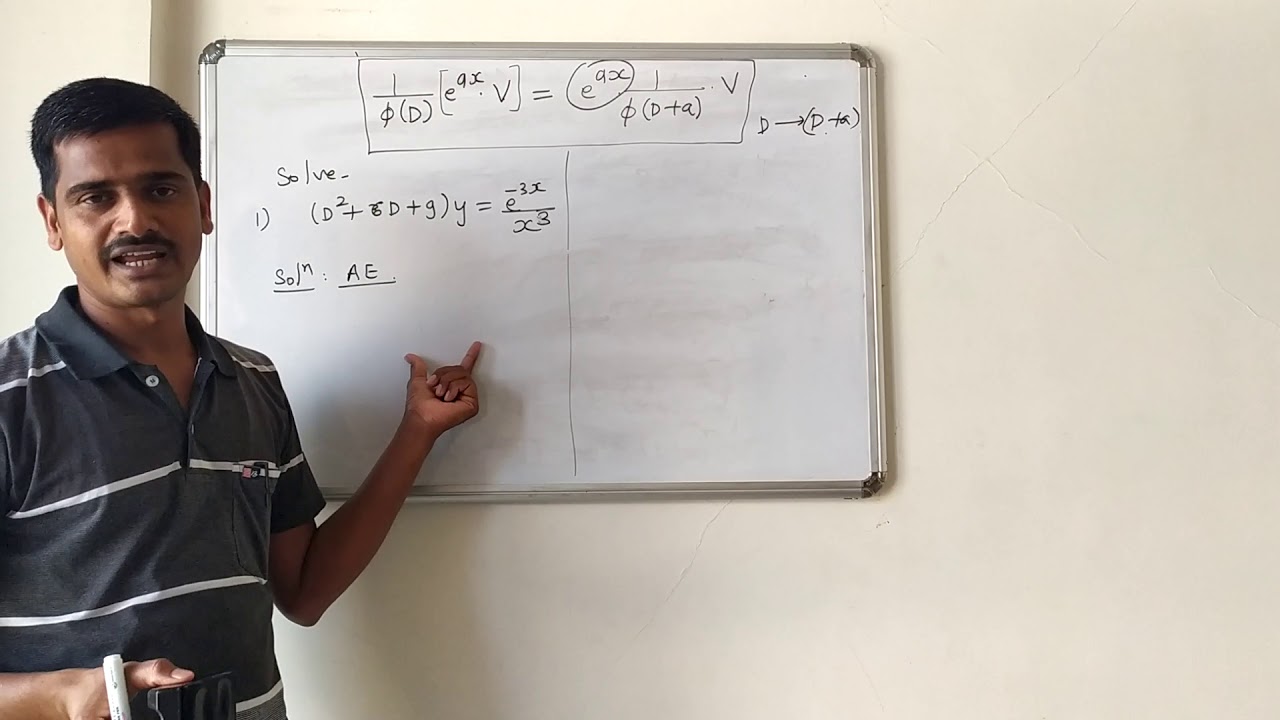 1/φ(D) [e^{ax}·V] = e^{ax} 1/φ(D+a) · V
D → (D+a)
Solve-
1) (D² + 6D + 9) y = e^{-3x}/x³
Solⁿ : AE.